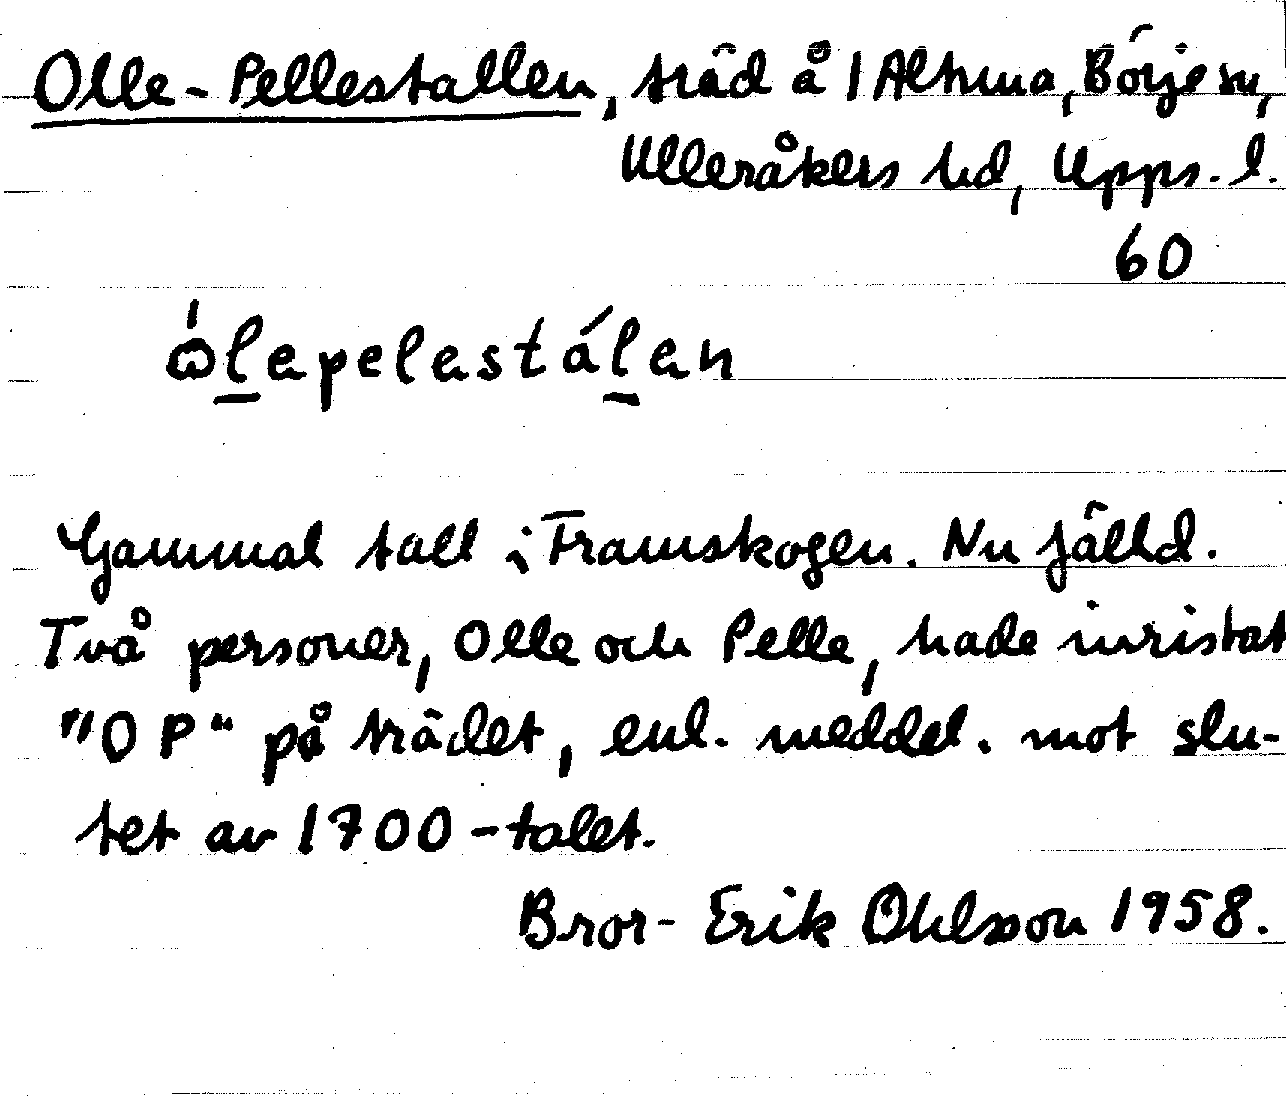 Olle-Pellestallen, träd å 1 Altuna, Börje sn,
Ulleråkers hd, Upps. l.
60
ò̩lepelestálen
Gammal tall i Framskogen. Nu fälld.
Två personer, Olle och Pelle, hade inristat
"O P" på trädet, enl. meddel. mot slu-
tet av 1700-talet.
Bror-Erik Ohlsson 1958.